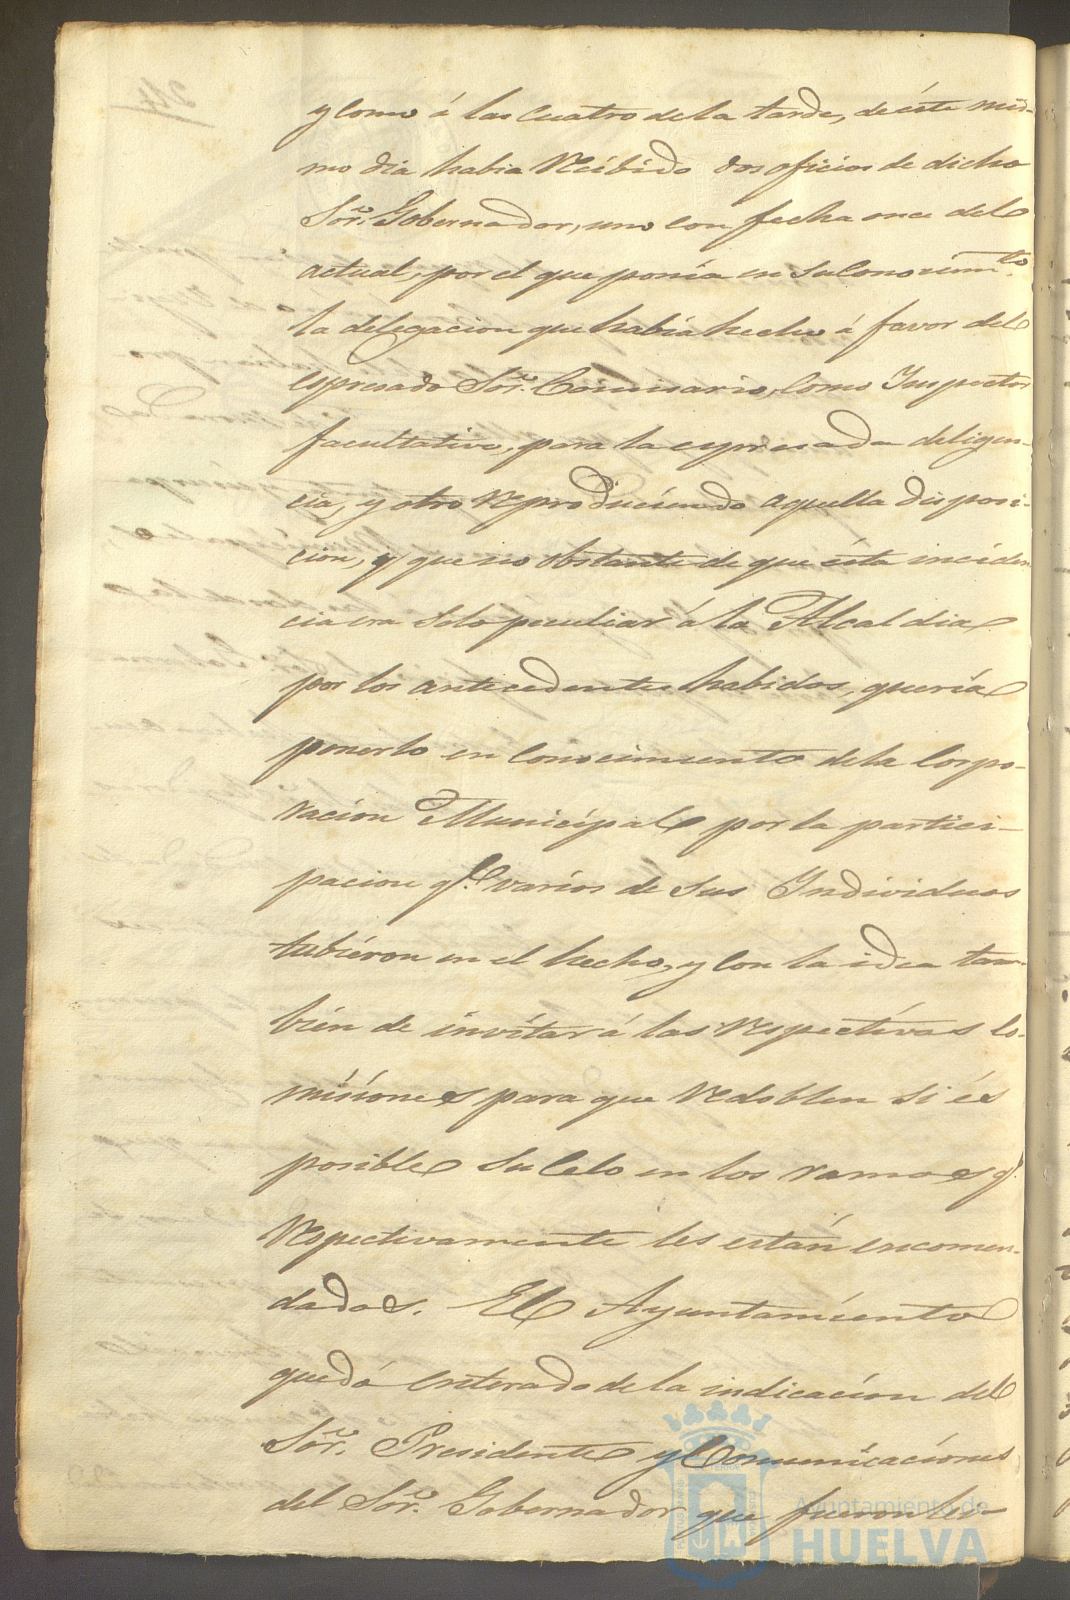 y como á las cuatro dela tarde, de éste mis-
mo dia habia recibido dos oficios de dicho
Sor. Gobernador, uno con fecha once del
actual, por el que ponia en su conocimto.
la delegacion que habia hecho á favor del
espresado Sor. Comisario, como Inspector
facultativo, para la espresada deligen-
cia, y otro reproduciendo aquella disposi-
cion, y que no obstante de que ésta inciden-
cia era solo peculiar á la Alcaldia
por los antecedentes habidos, queria
ponerlo en conocimiento dela Corpo-
racion Municipal por la partici-
pacion qe. varios de sus Individuos
tubieron en el hecho, y con la idea tam-
bien de invitar á las respectivas Co-
misiones para que redoblen si és
posible su celo en los ramos q.
respectivamente les están encomen-
dados. El Ayuntamiento
quedó enterado de la indicacion del
Sor. Presidente y Comunicaciones
del Sor. Gobernador que fueron lei-
Ayuntamiento de
HUELVA